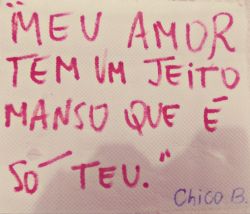 "MEU AMOR
TEM UM JEITO
MANSO QUE É
SÓ TEU."
Chico B.